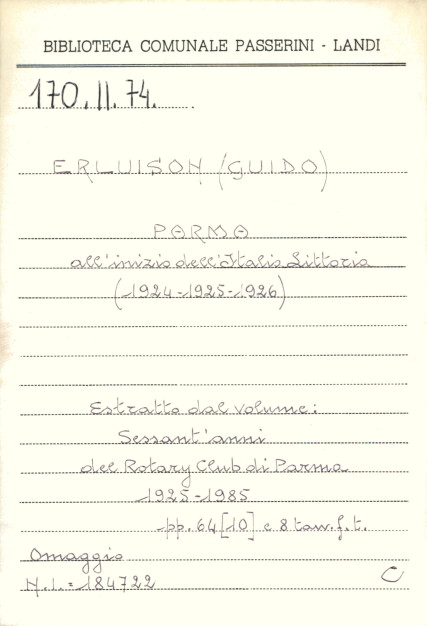 BIBLIOTECA COMUNALE PASSERINI - LANDI
170.II.74.
ERLUISON (GUIDO)
PARMA
all'inizio dell'Italia Littoria
(1924-1925-1926)
Estratto dal volume:
Sessant'anni
del Rotary Club di Parma
1925-1985
pp. 64 [10] e 8 tav. f. t.
Omaggio
N.I.=184722
C